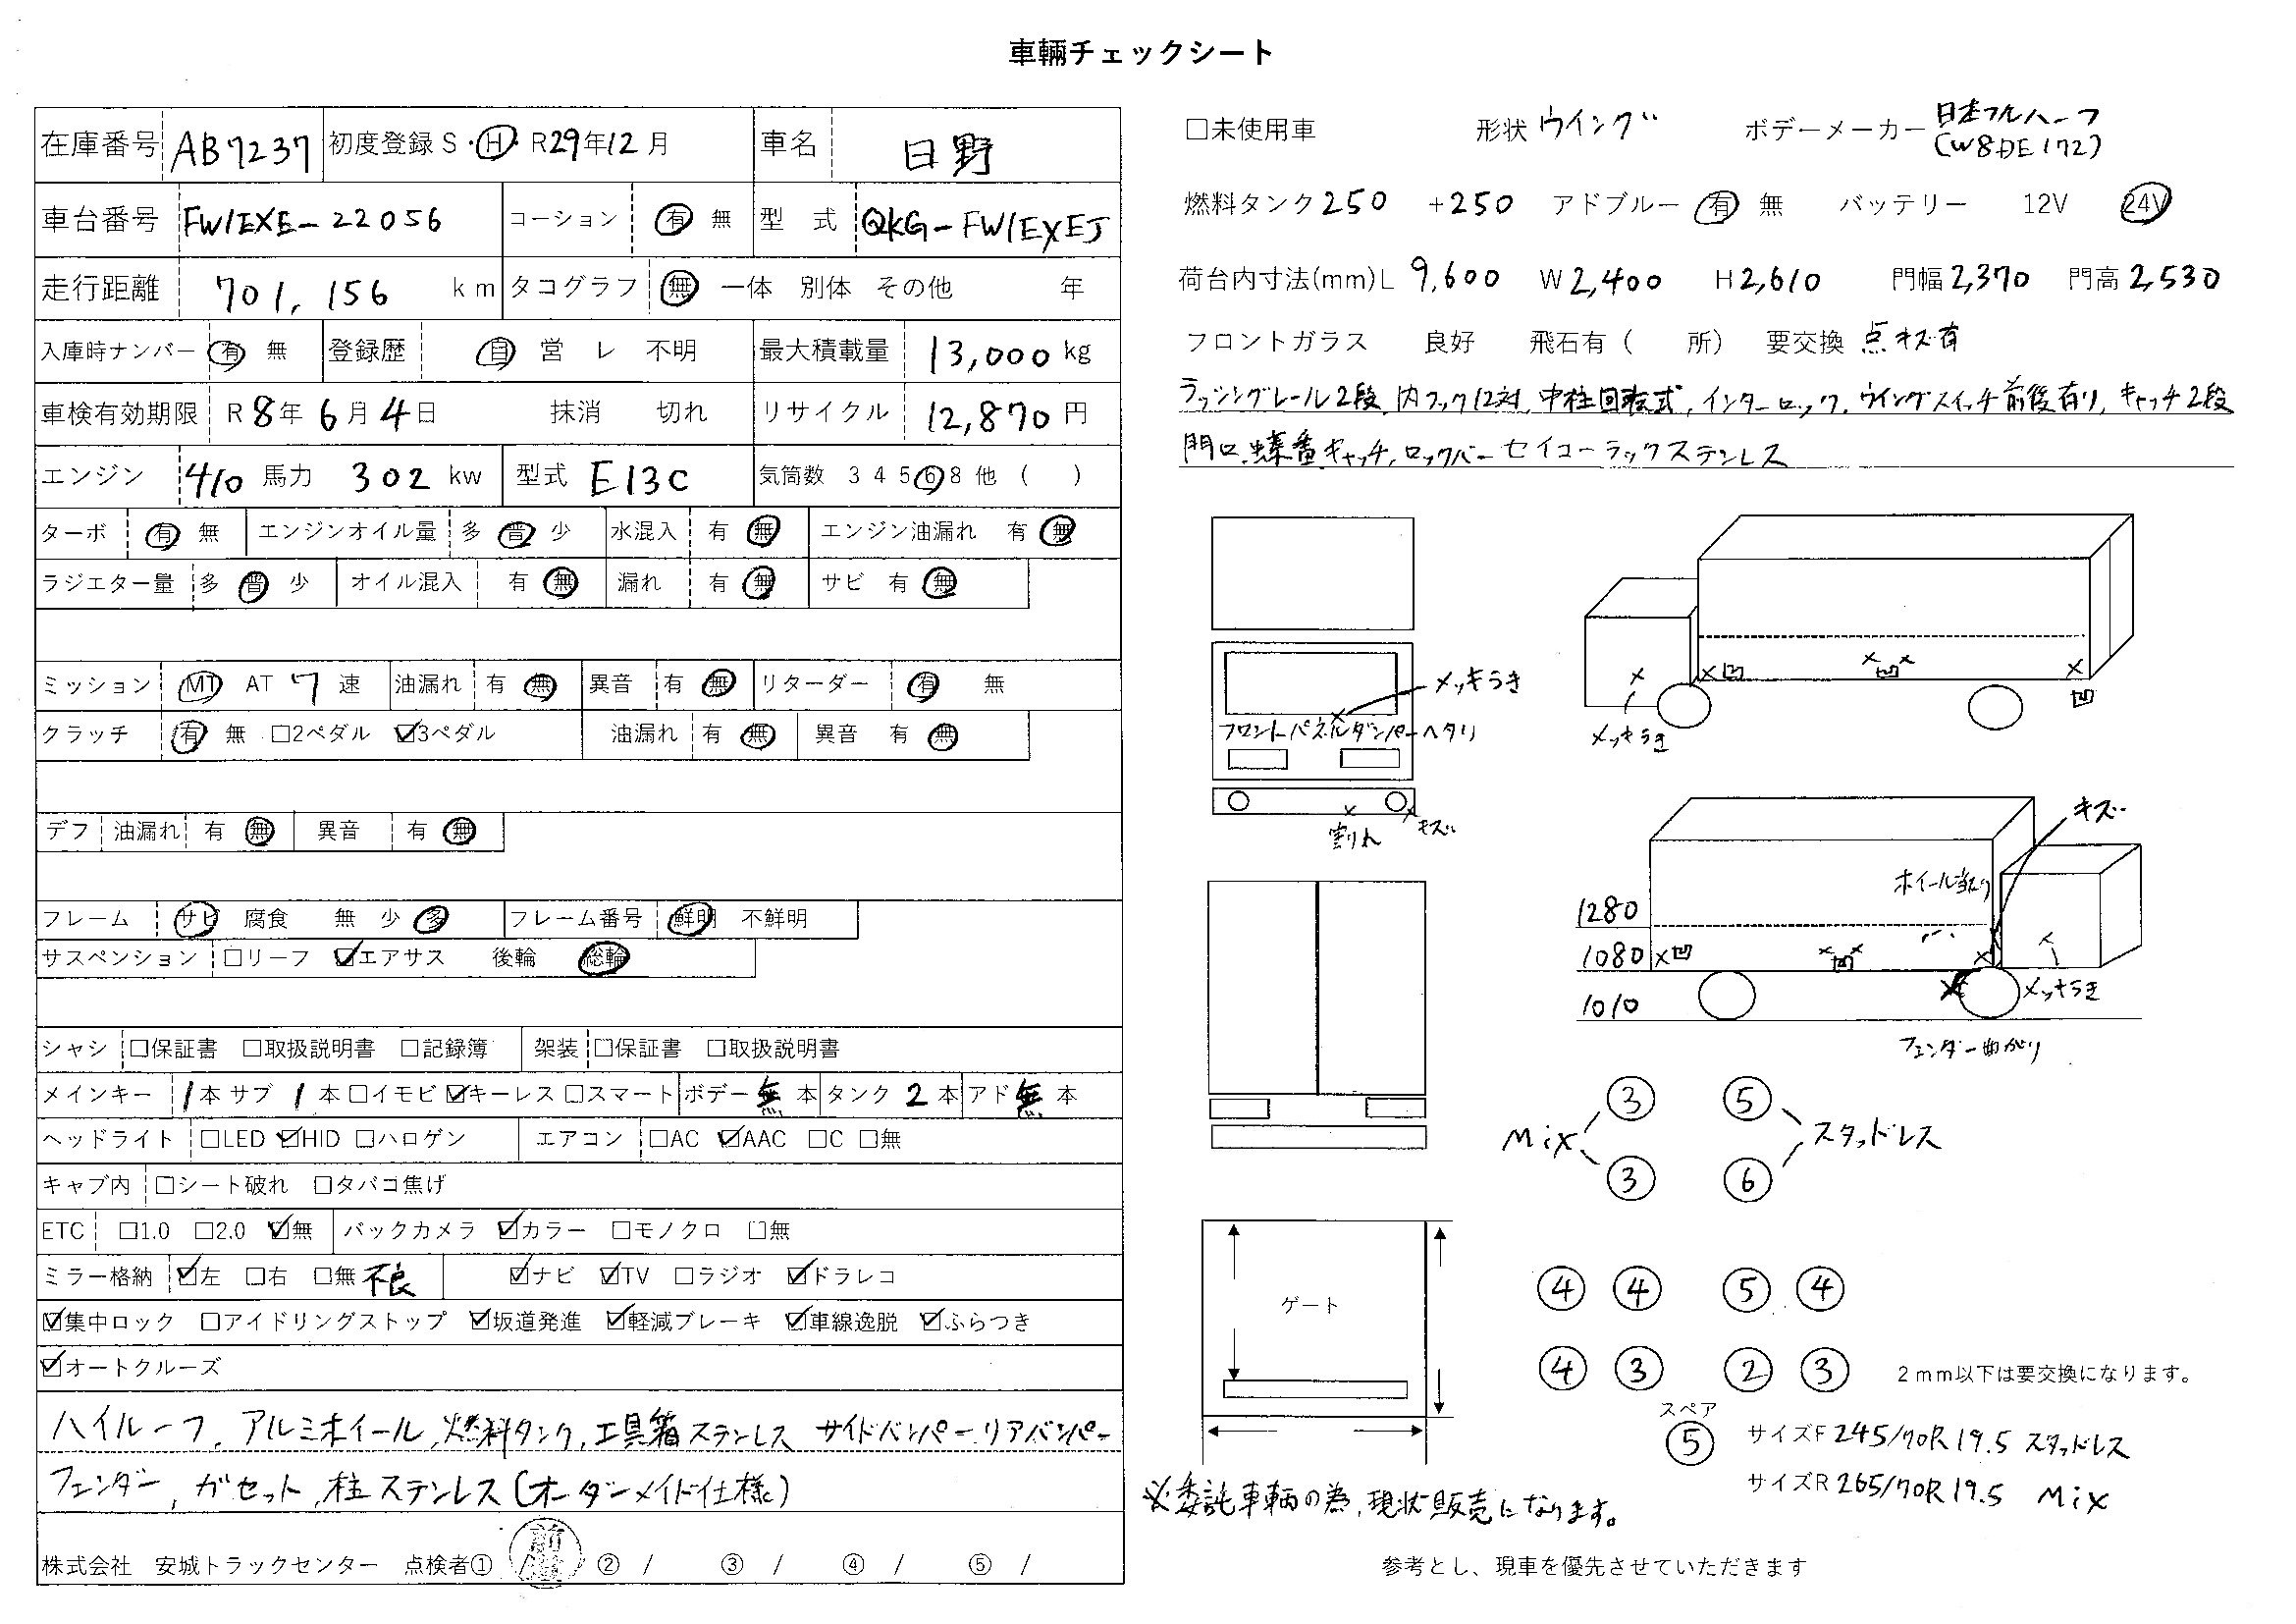 車輛チェックシート
在庫番号 AB7237 初度登録 S・H・R29年12月 車名 日野
車台番号 FW1EXE-22056 コーション 有 無 型 式 QKG-FW1EXEJ
走行距離 701,156 km タコグラフ 無 一体 別体 その他 年
入庫時ナンバー 有 無 登録歴 自 営 レ 不明 最大積載量 13,000 kg
車検有効期限 R8年6月4日 抹消 切れ リサイクル 12,870 円
エンジン 410 馬力 302 kw 型式 E13C 気筒数 3 4 5 6 8 他 ( )
ターボ 有 無 エンジンオイル量 多 普 少 水混入 有 無 エンジン油漏れ 有 無
ラジエター量 多 普 少 オイル混入 有 無 漏れ 有 無 サビ 有 無
ミッション MT AT 7 速 油漏れ 有 無 異音 有 無 リターダー 有 無
クラッチ 有 無 □2ペダル ☑3ペダル 油漏れ 有 無 異音 有 無
デフ 油漏れ 有 無 異音 有 無
フレーム サビ 腐食 無 少 多 フレーム番号 鮮明 不鮮明
サスペンション □リーフ ☑エアサス 後輪 総輪
シャシ □保証書 □取扱説明書 □記録簿 架装 □保証書 □取扱説明書
メインキー 1本 サブ 1本 □イモビ ☑キーレス □スマート ボデー 無 本 タンク 2 本 アド 無 本
ヘッドライト □LED ☑HID □ハロゲン エアコン □AC ☑AAC □C □無
キャブ内 □シート破れ □タバコ焦げ
ETC □1.0 □2.0 ☑無 バックカメラ ☑カラー □モノクロ □無
ミラー格納 ☑左 □右 □無 不良 ☑ナビ ☑TV □ラジオ ☑ドラレコ
☑集中ロック □アイドリングストップ ☑坂道発進 ☑軽減ブレーキ ☑車線逸脱 ☑ふらつき
☑オートクルーズ
ハイルーフ, アルミホイール, 燃料タンク, 工具箱ステンレス サイドバンパー, リアバンパー
フェンダー, ガセット, 柱ステンレス(オーダーメイド仕様)
株式会社 安城トラックセンター 点検者① ② / ③ / ④ / ⑤ /
□未使用車 形状 ウイング ボデーメーカー 日本フルハーフ
(W8DE172)
燃料タンク 250 +250 アドブルー 有 無 バッテリー 12V 24V
荷台内寸法(mm)L 9,600 W 2,400 H 2,610 門幅 2,370 門高 2,530
フロントガラス 良好 飛石有 ( 所) 要交換 点キズ有
ラッシングレール2段, 内フック12対, 中柱回転式, インターロック, ウイングスイッチ前後有り, キャッチ2段
門口, 蝶番, キャッチ, ロックバーセイコーラックステンレス
メッキうき
フロントパネルダンパーヘタリ
割れ キズ
凹 凹 凹
メッキうき
キズ
ホイール当たり
1280
1080 凹 凹
1010
メッキうき
フェンダー曲がり
Mix 3 5 スタッドレス
3 6
ゲート
4 4 5 4
4 3 2 3 2mm以下は要交換になります。
スペア
5 サイズF 245/70R19.5 スタッドレス
サイズR 265/70R19.5 Mix
※委託車輌の為, 現状販売になります。
参考とし、現車を優先させていただきます